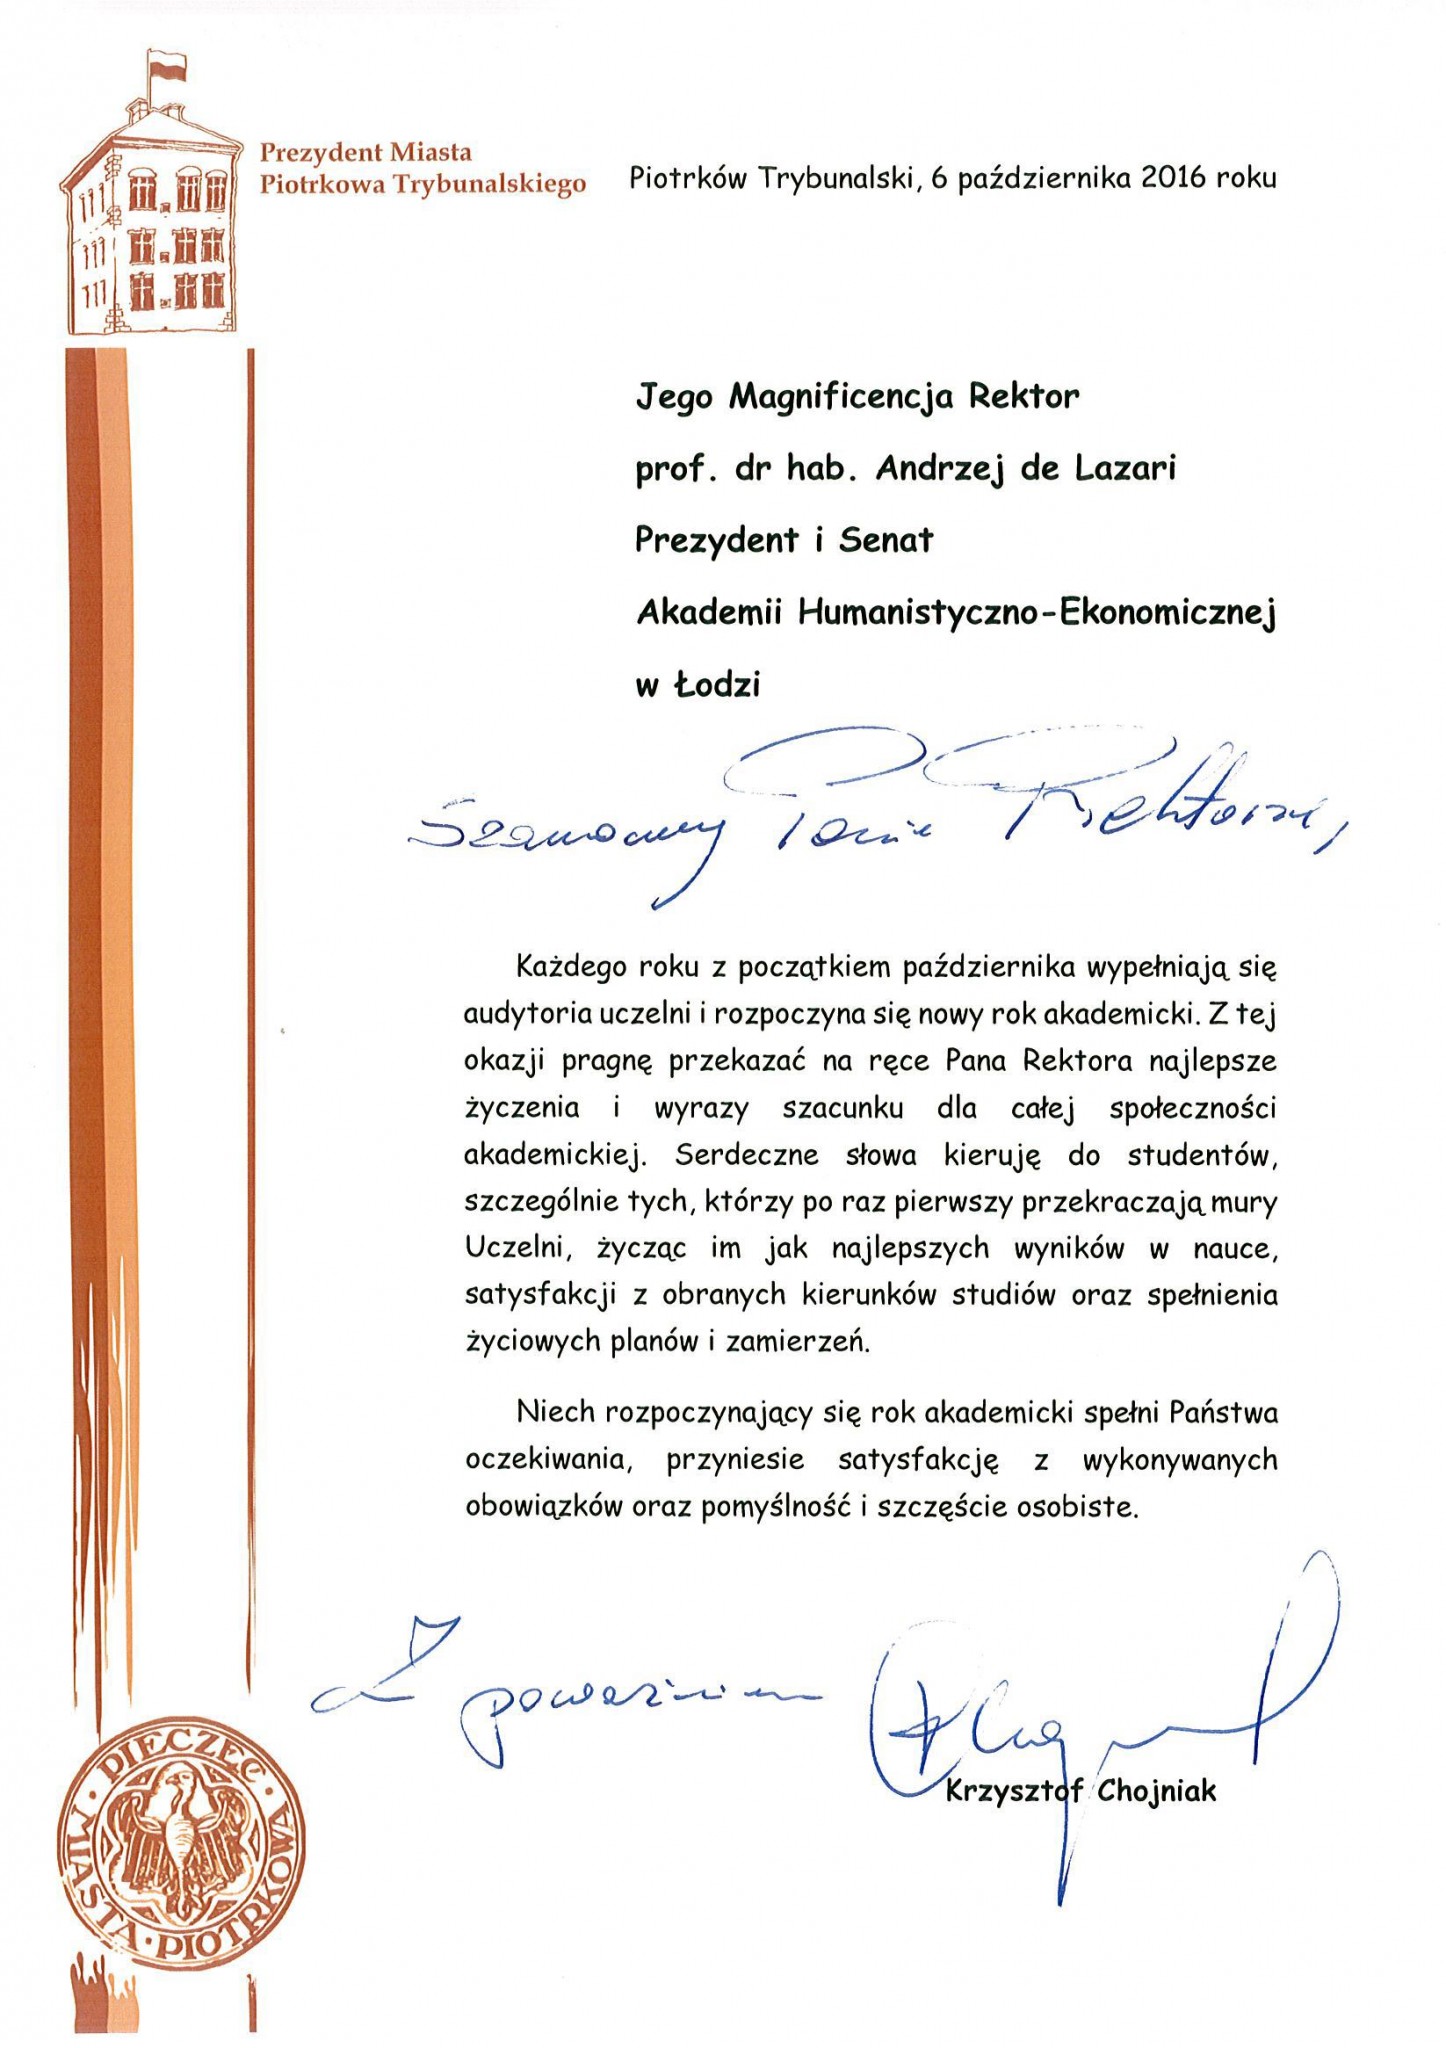 Prezydent Miasta
Piotrkowa Trybunalskiego
Piotrków Trybunalski, 6 października 2016 roku
Jego Magnificencja Rektor
prof. dr hab. Andrzej de Lazari
Prezydent i Senat
Akademii Humanistyczno-Ekonomicznej
w Łodzi
Szanowny Panie Rektorze,
Każdego roku z początkiem października wypełniają się
audytoria uczelni i rozpoczyna się nowy rok akademicki. Z tej
okazji pragnę przekazać na ręce Pana Rektora najlepsze
życzenia i wyrazy szacunku dla całej społeczności
akademickiej. Serdeczne słowa kieruję do studentów,
szczególnie tych, którzy po raz pierwszy przekraczają mury
Uczelni, życząc im jak najlepszych wyników w nauce,
satysfakcji z obranych kierunków studiów oraz spełnienia
życiowych planów i zamierzeń.
Niech rozpoczynający się rok akademicki spełni Państwa
oczekiwania, przyniesie satysfakcję z wykonywanych
obowiązków oraz pomyślność i szczęście osobiste.
Z poważaniem
Krzysztof Chojniak
PIECZĘĆ MIASTA PIOTRKOWA